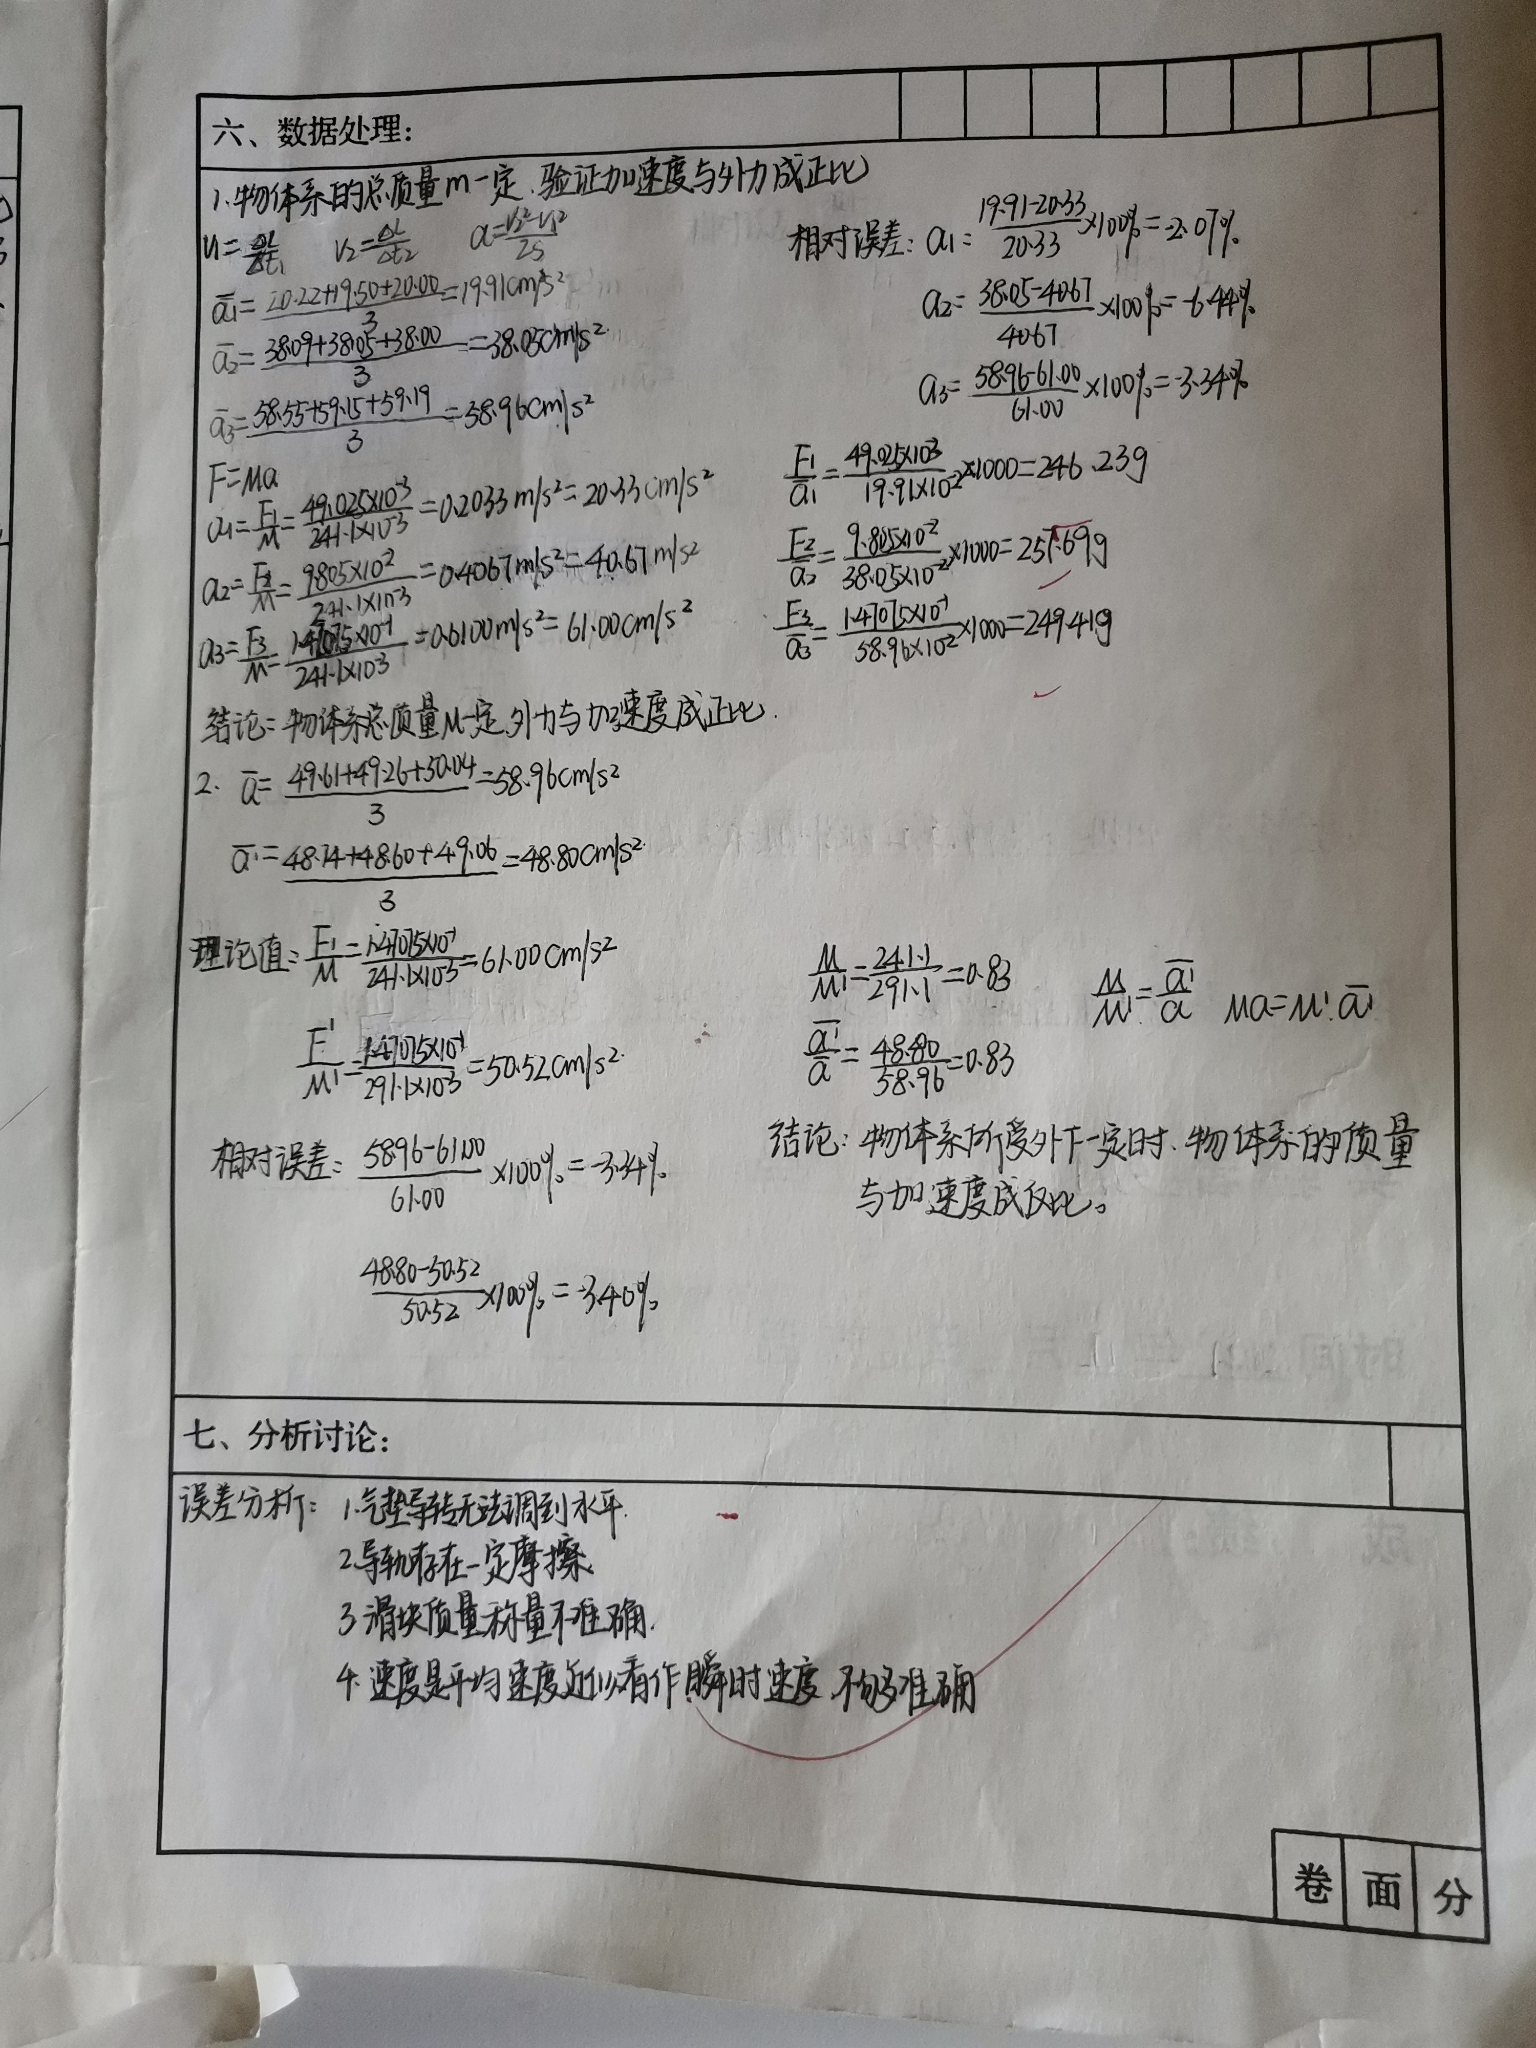 六、数据处理：
1.物体系的总质量m一定.验证加速度与外力成正比
V1=ΔL/Δt1 V2=ΔL/Δt2 a=V2²-V1²/2S
a̅1=20.22+19.50+20.00/3=19.91cm/s²
a̅2=38.09+38.05+38.00/3=38.05cm/s²
a̅3=58.55+59.15+59.19/3=58.96cm/s²
F=Ma
a1=F1/M=49.025×10⁻³/241.1×10⁻³=0.2033m/s²=20.33cm/s²
a2=F2/M=9.805×10⁻²/241.1×10⁻³=0.4067m/s²=40.67m/s²
a3=F3/M=1.47075×10⁻¹/241.1×10⁻³=0.6100m/s²=61.00cm/s²
相对误差：a1=19.91-20.33/20.33×100%=-2.07%
a2=38.05-40.67/40.67×100%=-6.44%
a3=58.96-61.00/61.00×100%=-3.34%
F1/a̅1=49.025×10⁻³/19.91×10⁻²×1000=246.23g
F2/a̅2=9.805×10⁻²/38.05×10⁻²×1000=257.69g
F3/a̅3=1.47075×10⁻¹/58.96×10⁻²×1000=249.41g
结论：物体系总质量M一定,外力与加速度成正比.
2. a̅=49.61+49.26+50.04/3=58.96cm/s²
a̅'=48.74+48.60+49.06/3=48.80cm/s²
理论值：F1/M=1.47075×10⁻¹/241.1×10⁻³=61.00cm/s²
F'/M'=1.47075×10⁻¹/291.1×10⁻³=50.52cm/s²
相对误差：58.96-61.00/61.00×100%=-3.34%
48.80-50.52/50.52×100%=-3.40%
M/M'=241.1/291.1=0.83 M/M'=a̅'/a Ma=M'.a̅'
a̅'/a=48.80/58.96=0.83
结论：物体系所受外F一定时、物体系的质量
与加速度成反比。
七、分析讨论：
误差分析：1.气垫导轨无法调到水平.
2.导轨存在一定摩擦.
3.滑块质量称量不准确.
4.速度是平均速度近似看作瞬时速度,不够准确
卷面分